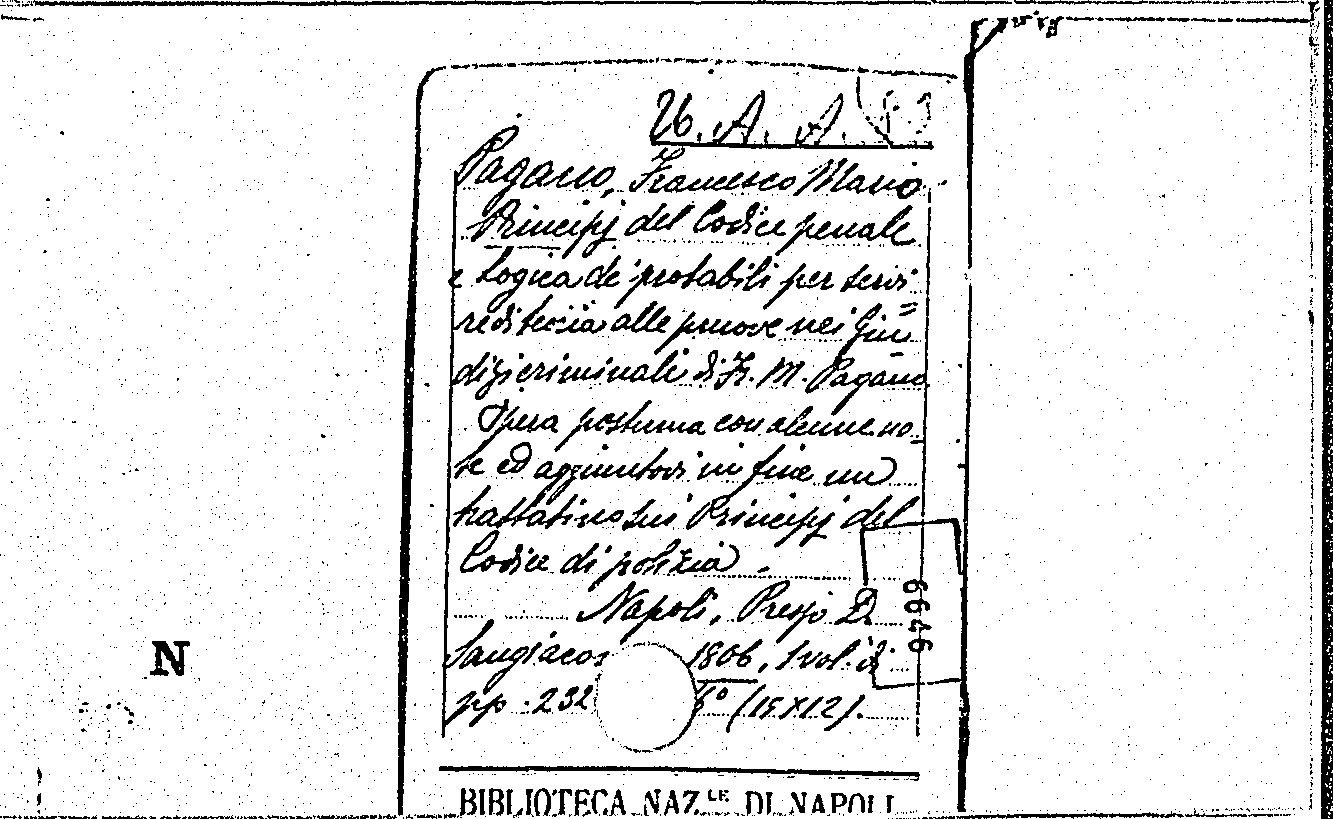 26. A. A.
Pagano, Francesco Mario
Principj del Codice penale
e Logica de' probabili per servi=
re di teoria alle pruove nei giu=
dizi criminali di Fr. M. Pagano
Opera postuma con alcune no=
te ed aggiuntovi in fine un
trattatino sui Principj del
Codice di polizia.
Napoli, Presso D.
Sangiaco 1806, 1 vol. di
pp. 232 8º (15X12).
9499
BIBLIOTECA NAZ.LE DI NAPOLI
N